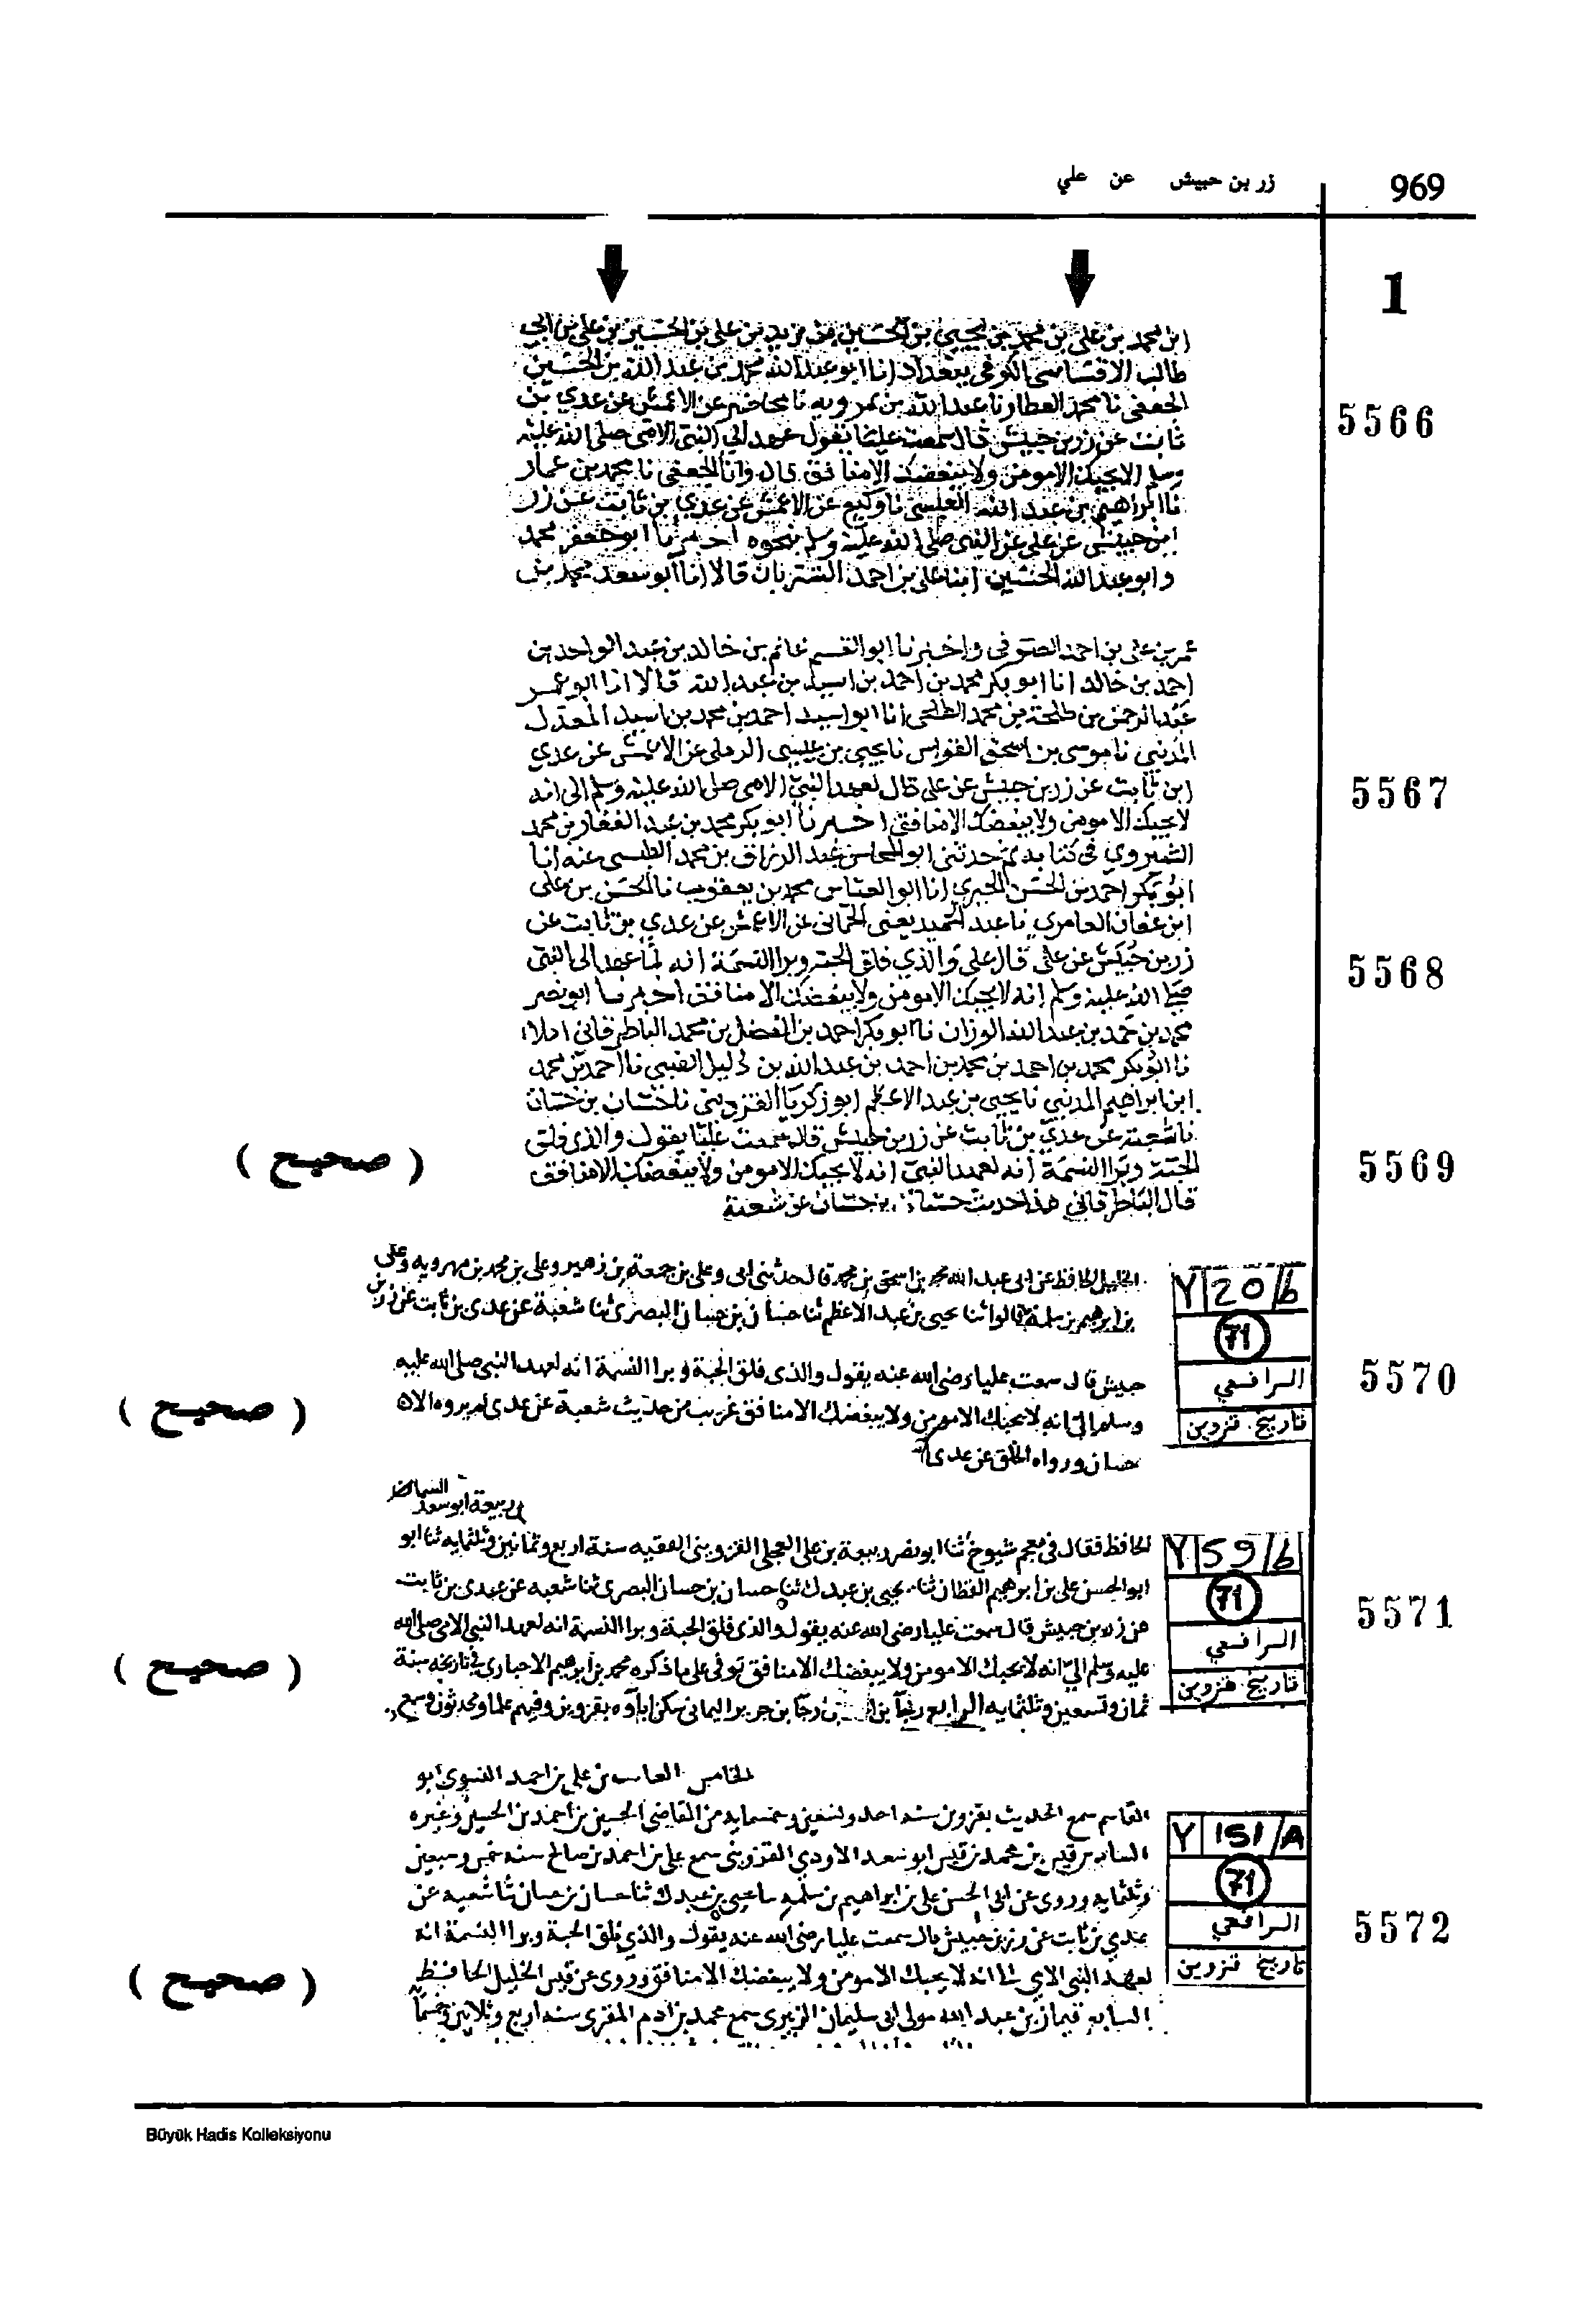 969
زر بن حبيش عن علي
1
ابن محمد بن علي بن محمد بن يحيى بن الحسين بن زيد بن علي بن الحسين بن علي بن ابي
طالب الاقساسى الكوفي ببغداد انا ابو عبد الله محمد بن عبد الله بن الحسين
الجعفى نا محمد العطار نا عبد الله بن عمرويه نا محاضر عن الاعمش عن عدي بن
5566
ثابت عن زر بن حبيش قال سمعت عليا يقول عهد الي النبي الامى صلى الله عليه
وسلم الا يحبك الا مومن ولا يبغضك الا منافق قال وانا الجعفى نا محمد بن عمار
نا ابراهيم بن عبد الله العبسى نا وكيع عن الاعمش عن عدي بن ثابت عن زر
ابن حبيش عن على عن النبى صلى الله عليه وسلم بنحوه اخبرنا ابو جعفر محمد
وابو عبد الله الحسين ابنا على بن احمد قالا انا ابو سعد محمد بن
عمر بن على بن احمد الصوفى واخبرنا ابو القسم غانم بن خالد بن عبد الواحد بن
احمد بن خالد انا ابو بكر محمد بن احمد بن اسيد بن عبد الله قالا انا ابو عمر
عبد الرحمن بن طلحة بن محمد الطلحى انا ابو اسيد احمد بن محمد بن اسيد المعدل
المديني نا موسى بن اسحق القواس نا يحيى بن عيسى الرملى عن الاعمش عن عدي
ابن ثابت عن زر بن حبيش عن على قال لعهد النبي الامى صلى الله عليه وسلم الى انه
5567
لا يحبك الا مومن ولا يبغضك الا منافق اخبرنا ابو بكر محمد بن عبد الغفار بن محمد
الشيروي فى كتابه ثم حدثنى ابو المحاسن عبد الرزاق بن محمد الطبسى عنه انا
ابو بكر احمد بن الحسن الحيري انا ابو العباس محمد بن يعقوب نا الحسن بن على
ابن عفان العامري نا عبد الحميد يعنى الحمانى عن الاعمش عن عدي بن ثابت عن
زر بن حبيش عن على قال على والذي فلق الحبة وبرا النسمة انه لما عهد الى النبى
5568
صلى الله عليه وسلم انه لا يحبك الا مومن ولا يبغضك الا منافق اخبرنا ابو نصر
محمد بن حمد بن عبد الله الوزان نا ابو بكر احمد بن الفضل بن محمد الباطرقاني املاء
نا ابو بكر محمد بن احمد بن محمد بن احمد بن عبد الله بن دليل نا احمد بن محمد
ابن ابراهيم المديني نا يحيى بن عبد الاعظم ابو زكريا القزوينى نا حسان بن حسان
نا شعبة عن عدي بن ثابت عن زر بن حبيش قال سمعت عليا يقول والذى فلق
الحبة وبرا النسمة انه لعهد النبي انه لا يحبك الا مومن ولا يبغضك الا منافق
5569
( صحيح )
قال الباطرقاني هذا حديث حسان بن حسان عن شعبة
Y 20/b
71
الرافعي
تاريخ قزوين
الخليل الحافظ عن ابى عبد الله محمد بن اسحق بن محمد قال حدثنى ابى وعلى بن جمعة بن زهير وعلى بن محمد بن مهرويه وعلى
بن ابرهيم بن سلمة قالوا ثنا يحيى بن عبد الاعظم ثنا حسان بن حسان البصرى ثنا شعبة عن عدى بن ثابت عن زر بن
حبيش قال سمعت عليا رضى الله عنه يقول والذى فلق الحبة وبرا النسمة انه لعهد النبى صلى الله عليه
5570
وسلم الى انه لا يحبك الا مومن ولا يبغضك الا منافق غريب من حديث شعبة عن عدى لم يروه الا
( صحيح )
حسان ورواه الخلق عن عدى
ربيعة ابو سعد السمان
Y 59/b
71
الرافعي
تاريخ قزوين
الحافظ فقال فى معجم شيوخ ثنا ابو نصر ربيعة بن على العجلى القزوينى الفقيه سنة اربع وثمانين وثلثمايه ثنا ابو
ابو الحسن على بن ابرهيم القطان ثنا يحيى بن عبدك ثنا حسان بن حسان البصرى ثنا شعبه عن عدى بن ثابت
عن زر بن حبيش قال سمعت عليا رضى الله عنه يقول والذى فلق الحبة وبرا النسمة انه لعهد النبى الامى صلى الله
5571
عليه وسلم الى انه لا يحبك الا مومن ولا يبغضك الا منافق توفى على ما ذكره محمد بن ابرهيم الاخبارى فى تاريخه سنة
( صحيح )
ثمان وتسعين وثلثمايه الرابع رجا بن رجا بن جرير اليمانى سكن اباؤه بقزوين وفيهم علما ومحدثون
الخامس بن على بن احمد النسوي ابو
القاسم سمع الحديث بقزوين سنه احد وخمسمايه من القاضى الحسين بن احمد بن الحسين وغيره
Y 151/A
71
الرافعي
تاريخ قزوين
السادس قيس بن محمد بن قيس ابو سعد الاودي القزوينى سمع على بن احمد بن صالح سنه خمس وسبعين
وثلثمايه وروى عن ابى الحسن على بن ابراهيم بن سلمه يحيى بن عبدك ثنا حسان بن حسان ثنا شعبه عن
عدي بن ثابت عن زر بن حبيش قال سمعت عليا رضى الله عنه يقول والذي فلق الحبة وبرا النسمة انه
5572
لعهد النبى الامي الي انه لا يحبك الا مومن ولا يبغضك الا منافق وروى عن قيس الخليل الحافظ
( صحيح )
السابع قيماز بن عبد الله مولى ابى سليمان الزبيرى سمع محمد بن ادم المقرى سنه اربع وثلاثين وخمسما
Büyük Hadis Kolleksiyonu